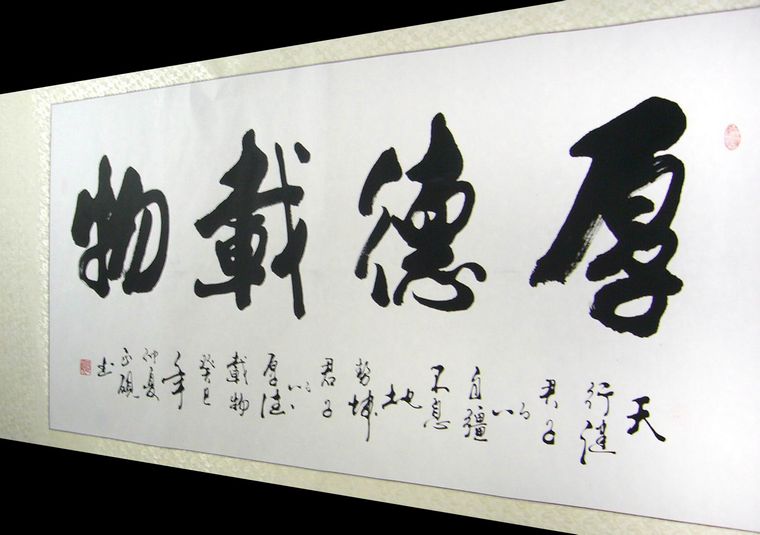 厚德載物
天
行健
君子
以
自彊
不息
地
勢坤
君子
以
厚德
載物
癸巳
年
仲夏
正硯
書